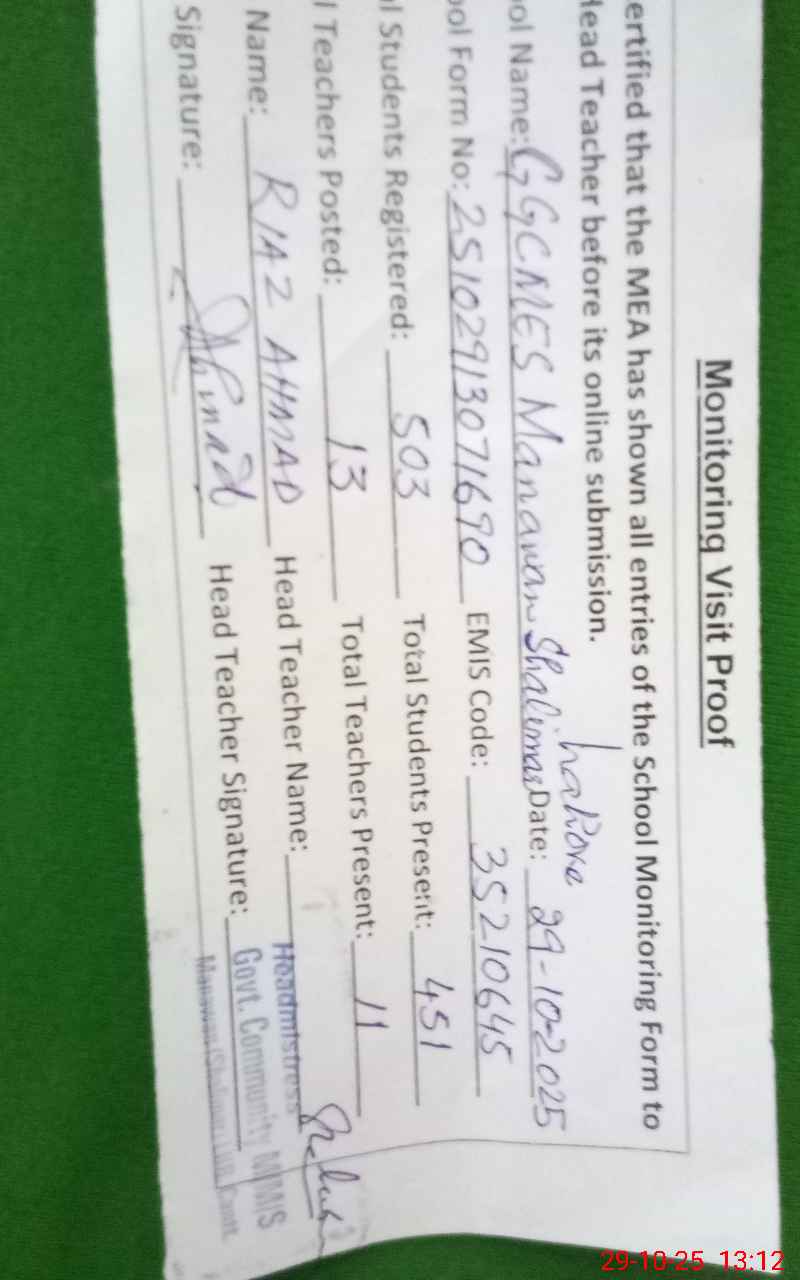 Monitoring Visit Proof
ertified that the MEA has shown all entries of the School Monitoring Form to
Head Teacher before its online submission.
ool Name: GGCMES Manawan Shalimar Lahore Date: 29-10-2025
ool Form No: 25102913071690 EMIS Code: 35210645
al Students Registered: 503 Total Students Present: 451
l Teachers Posted: 13 Total Teachers Present: 11
Name: RIAZ AHMAD Head Teacher Name:
Signature: Ahmad Head Teacher Signature:
Headmistress
Govt. Community
29-10-25 13:12